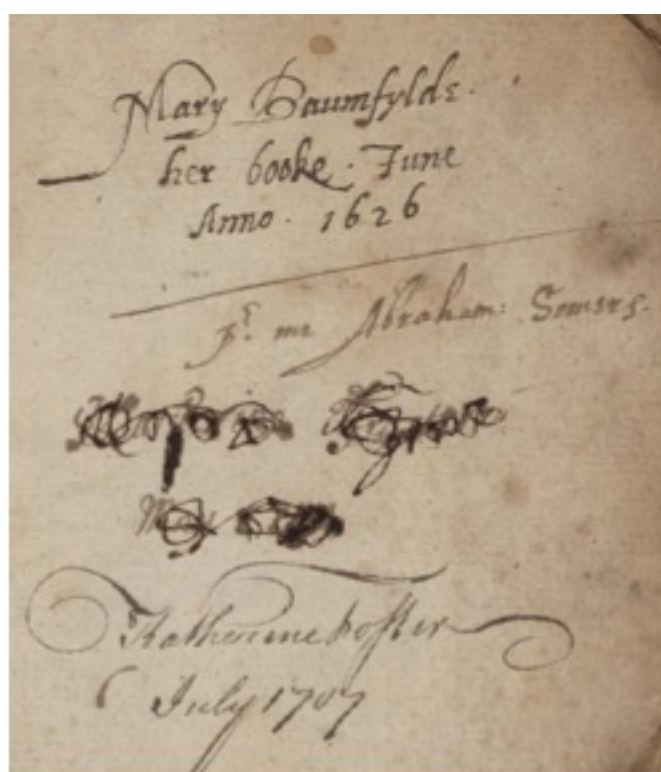 Mary Baumfylde
her booke. June
Anno. 1626
pr. me Abraham: Somers.
Katherine foster
July 1707